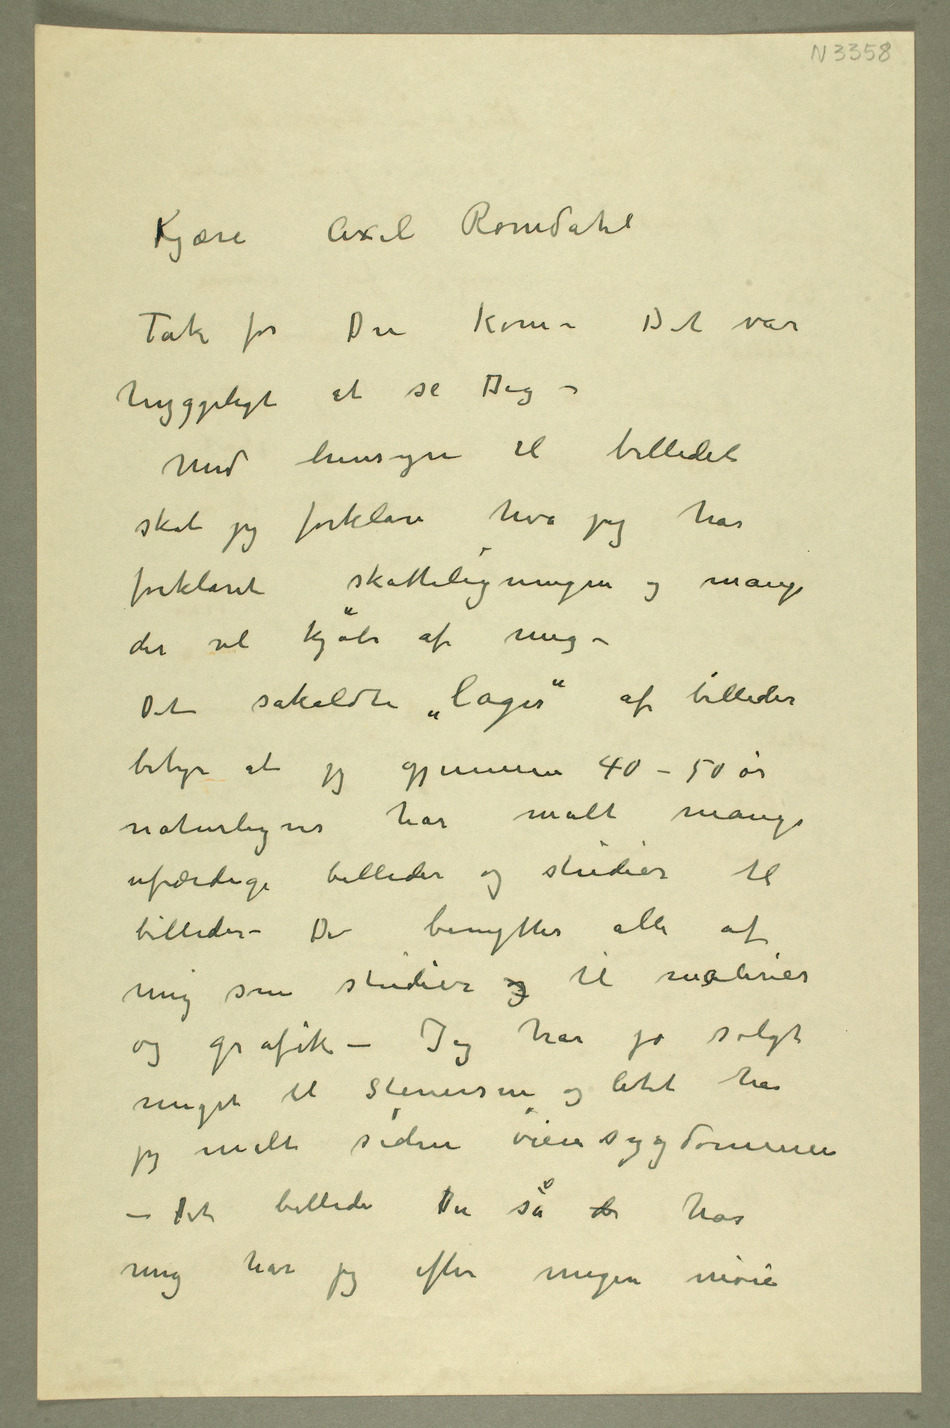 N 3358
Kjære Axel Romdahl
Tak for Du kom – Det var
hyggeligt at se Dig –
Med hensyn til billedet
skal jeg forklare hva jeg har
forklaret skatteligningen og mange
der vil kjøbe af mig –
Det såkaldte „lager" af billeder
betyr at jeg gjennem 40 – 50 år
naturligvis har malt mange
ufærdige billeder og studier til
billeder – De benyttes alle af
mig som studier og til malerier
og grafik – Jeg har jo solgt
meget til Stenersen og litet har
jeg malt siden øiensygdommen
– Det billede Du så hos
mig har jeg efter megen møie